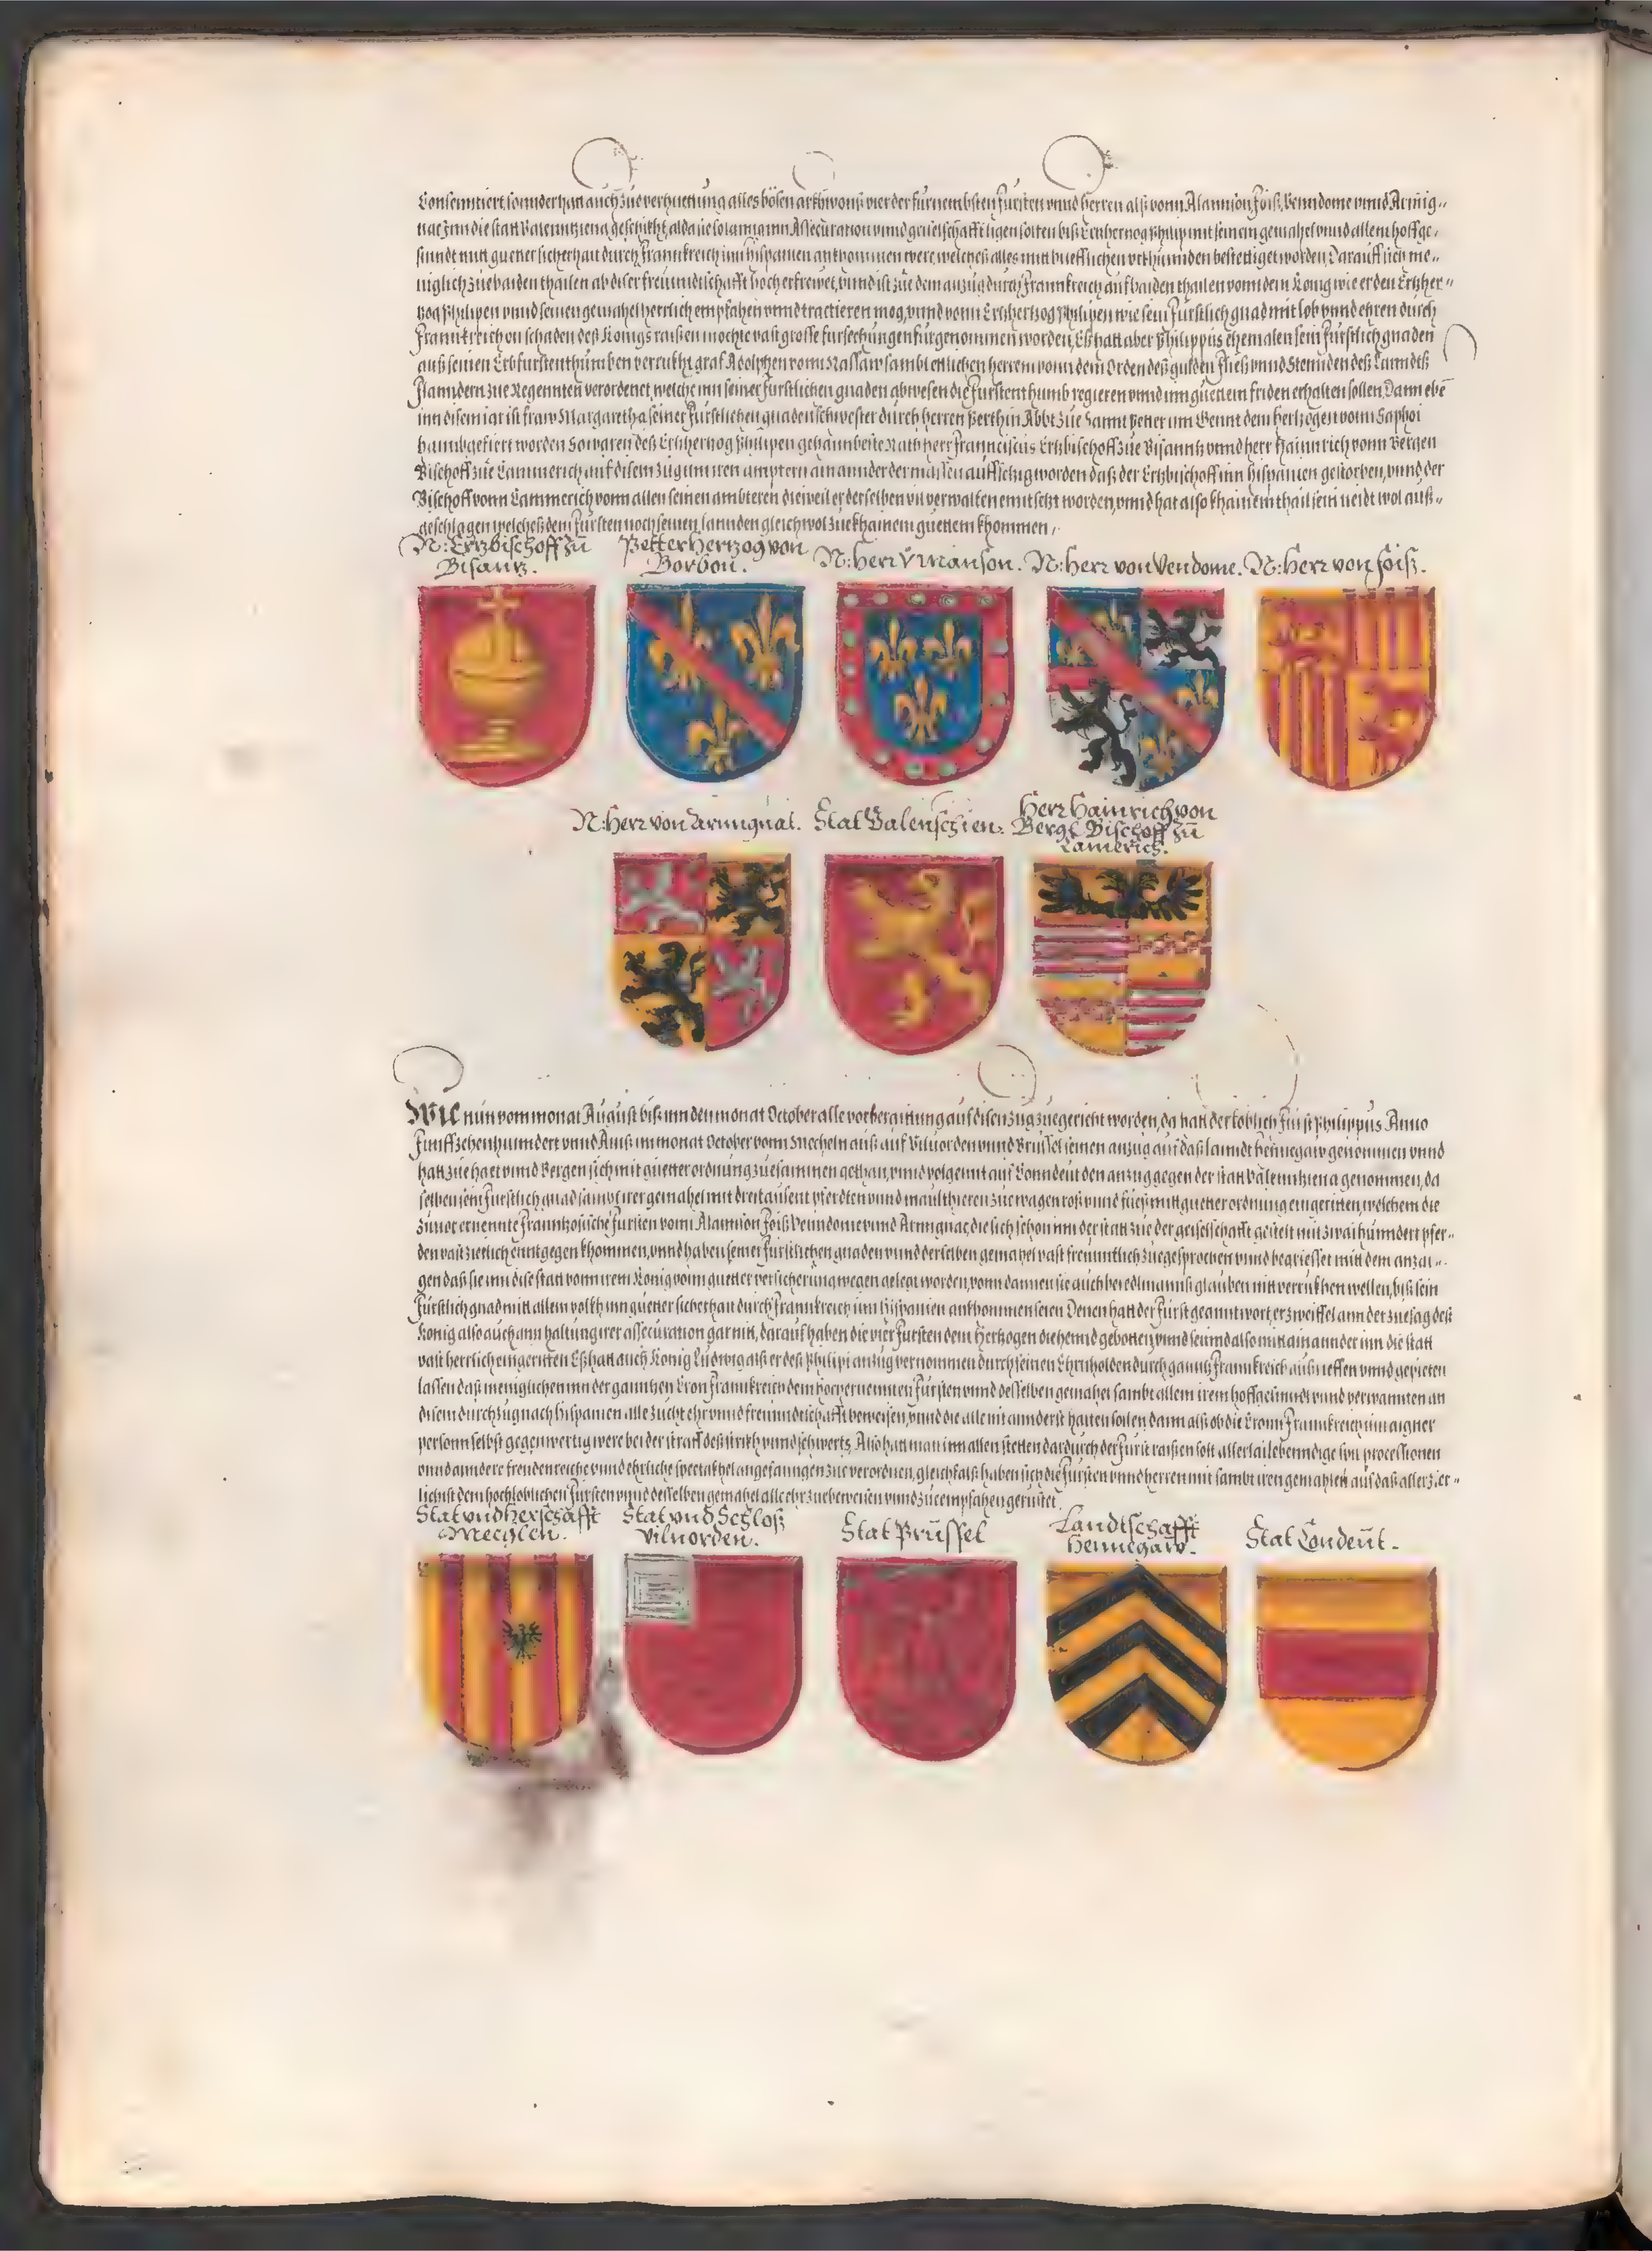 Consentiert, sonnder hatt auch zue verhuettung alles bösen arkhwons vier der fürnembsten fürsten vnnd herren alß vonn Alannson foiß, Venndome vnnd Armig,,
nac Inn die statt Valenntziena geschikht, alda
sinndt mit guetter sicherhait durch Frannkreich inn hispanien ankhommen were, welches alles mit brieflichen vrkhunnden bestettiget worden, Darauff sich me,,
niglich zue baiden thailen ab diser freundtschafft hoch erfrewet, vnnd ist zue dem anzug durch Frannkreich auf baiden thailen vonn dem König wie er den Ertzher,,
zog Philipen vnnd seinen gemahel herrlich empfahen vnnd tractieren mög, vnnd vonn Ertzhertzog Philipen wie sein fürstlich gnad mit lob vnnd ehren durch
Frannkreich on schaden deß Königs raißen mochte vast grosse fursechungen fürgenommen worden, Eß hatt aber Philippus ehemalen sein fürstlich gnaden
auß seinen Erbfurstenthumben verrukht, graf Adolphen vonn Nassaw sambt etlichen herren vonn dem Orden deß gulden fließ vnnd Stennden deß Lanndtß
Flanndern zue Regennten verordenet, welche inn seiner fürstlichen gnaden abwesen die furstenthumb regieren vnnd inn guettem friden erhalten sollen, Dann ebe
inn disem iar ist fraw Margaretha seiner fürstlichen gnaden schwester durch herren Berthin Abbt zue Sannt Petter inn Gennt dem hertzogen vonn Saphoi
haimbgefiert worden So waren deß Ertzhertzog Philipen gehaimbeste Räth herr Franciscus Ertzbischoff zue Bisanntz vnnd herr Hainrich vonn Bergen
Bischoff zue Cammerich auf disem zug inn iren ampteren ainannder der massen auffsetzig worden daß der Ertzbischoff inn hispanien gestorben, vnnd der
Bischoff vonn Cammerich vonn allen seinen ambteren dieweil er derselben vil verwalten entsetzt worden, vnnd hat also khainem thail sein neidt wol auß,,
geschlagen welches dem fürsten noch seinen lannden gleich wol zue khainem guettem khommen,
N: Ertzbischoff zu
Bisantz.
Petter Hertzog von
Borbon.
N: Herr v Manson.
N: Herr von Vendome.
N: Herr von Foiß.
N: Herr von Armignac.
Stat Valenschien:
Herr Hainrich von
Berge Bischoff zu
Camerich.
Wie nun vom monat August biß inn den monat October alle vorberaittung auf disen zug zuegericht worden, da hatt der loblich fürst Philippus Anno
Funffzehenhunndert vnnd Ainß im monat October vonn Mecheln auß auf Viluorden vnnd Brüssel seinen anzug auf daß lanndt hennegaw genommen vnnd
hatt zue haet vnnd Bergen sich mit guetter ordnung zuesammen gethan, vnnd volgennt auf Conndeut den anzug gegen der statt Valenntziena genommen, da
selben sein fürstlich gnad sambt irer gemahel mit dreitausent pferdten vnnd maulthieren zue wagen roß vnnd fueß mit guetter ordnung eingeritten, welchem die
zuuor ernennte Frannkosische fursten vonn Alannson foiß Venndome vnnd Armignac, die sich schon inn der statt zue der geiselschafft gestelt mit zwaihunndert pfer,,
den vast zierlich enntgegen khommen, vnnd haben seiner furstlichen gnaden vnnd derselben gemahel vast freunntlich zuegesprochen vnnd begriesset mitt dem anzai,,
gen daß sie inn dise statt vonn irem König vonn guetter versicherung wegen gelegt worden, vonn dannen sie auch glauben nitt verrukhen wellen, biß sein
fürstlich gnad mitt allem volkh inn guetter sicherhait durch Frannkreich inn hispanien ankhommen seien Denen hatt der fürst geanntwort, er zweiffel ann der zuesag deß
König also auch ann haltung irer assecuration gar nitt, darauf haben die vier fursten dem Hertzogen die hennd gebotten, vnnd seinnd also mitt ainannder inn die statt
vast herrlich eingeritten Eß hatt auch König Ludwig alß er deß Philipi anzug vernommen durch seinen Ehrnholden durch ganntz Frannkreich außrueffen vnnd gepieten
lassen daß meniglichen inn der ganntzen Cron Frannkreich dem hochernennten Fürsten vnnd desselben gemahel sambt allem irem hoffgesinndt vnnd verwannten an
disem durchzug nach hispanien alle zucht ehr vnnd freunndtschafft beweisen, vnnd die alle nit annderst halten sollen dann alß ob die Cronn Frannkreich inn aigner
personn selbst gegenwertig were bei der straff deß strikh vnnd schwerts, Also hatt man inn allen stetten dardurch der Furst raißen solt allerlai lebenndige spil processionen
vnnd anndere freudenreiche vnnd ehrliche spectakhel angefanngen zue verordnen, gleichfalß haben sich die fürsten vnnd herren mit sambt iren gemahlen auf daß aller zier,,
lichist dem hochloblichen fürsten vnnd desselben gemahel alle ehr zue beweisen vnnd zue empfahen gerüstet.
Stat vnd Herschafft
Mechlen.
Stat vnd Schloß
Viluorden.
Stat Prüssel
Landtschafft
Hennegaw.
Stat Condeut.